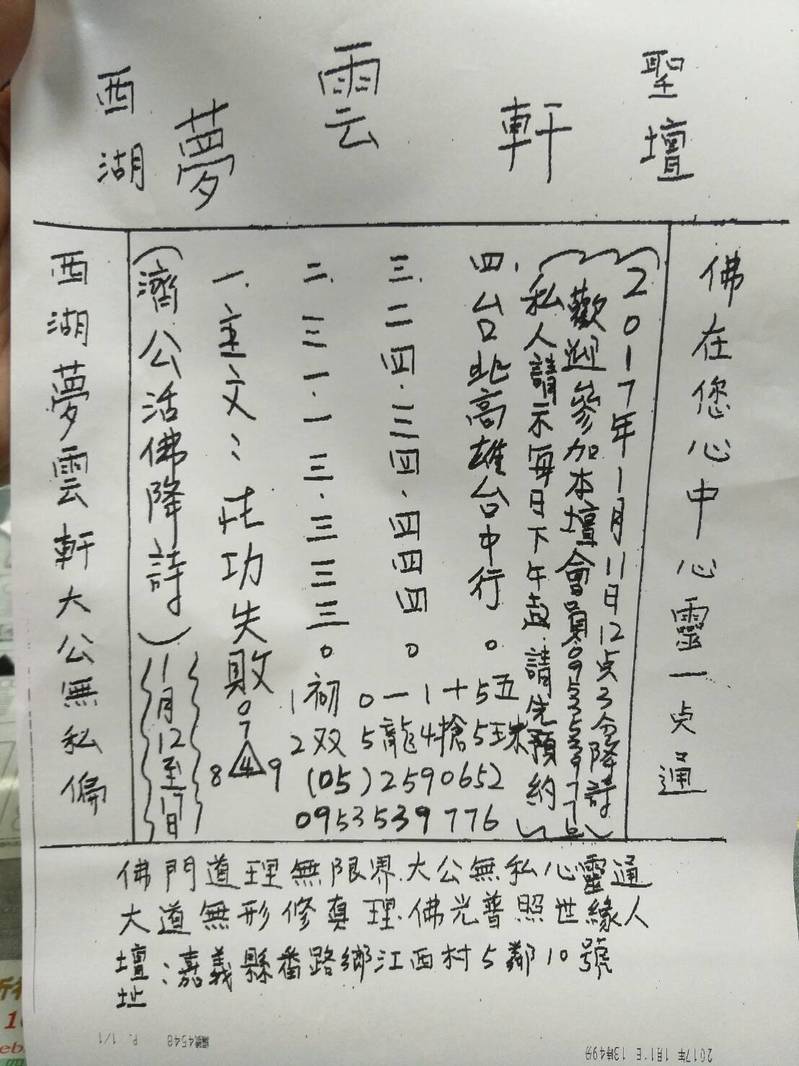 西湖 夢雲軒 聖壇
佛在您心中心靈一点通
2017年1月11日12点3分降詩
歡迎參加本壇會員0953539776
私人請示每日下午起.請先預約
四.台北高雄台中行。
三.二四.三四.四四四。
二.三一.一三.三三三。
一.主文:成功失敗
(濟公活佛降詩)11月12至17日
西湖夢雲軒大公無私偏
初 一 十 五
1 0 1 5
双 龍 搶 珠
2 5 4 5
0
7
8 4 9
(05)2590652
0953539776
佛門道理無限界.大公無私心靈通
大道無形修真理.佛光普照世緣人
壇址:嘉義縣番路鄉江西村5鄰10號
2017年 1月11日 13時49分
編號4548 P. 1/1